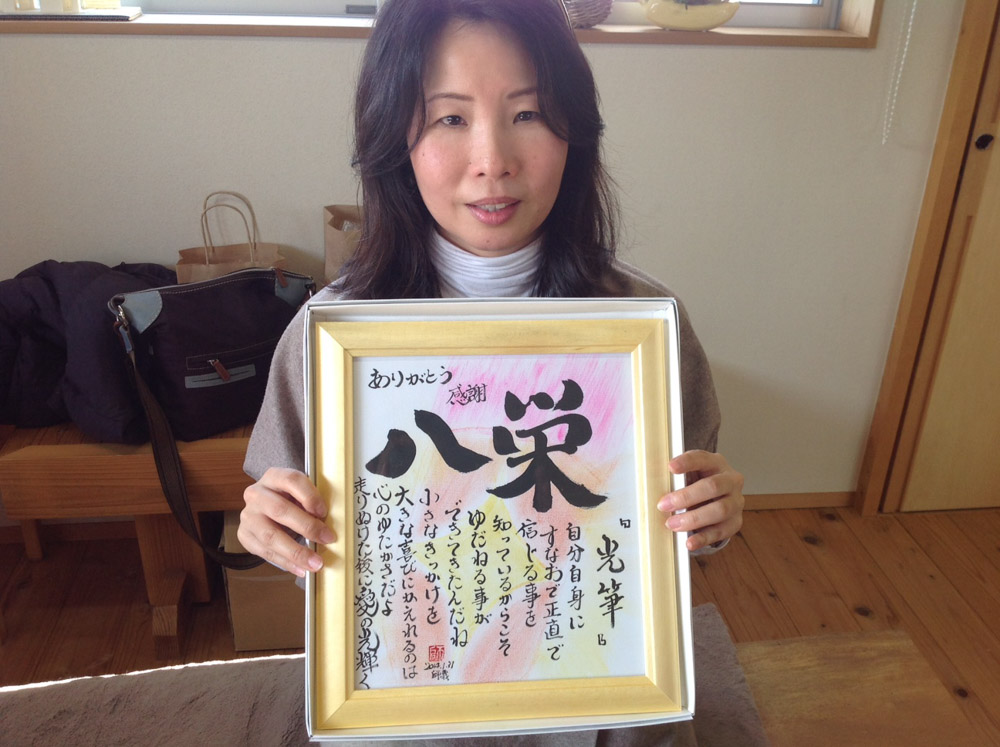 ありがとう
感謝
八栄
『光筆』
自分自身に
すなおで正直で
信じる事を
知っているからこそ
ゆだねる事が
できてきたんだね
小さなきっかけを
大きな喜びにかえれるのは
心のゆたかさだよ
走りぬけた後に の光輝く